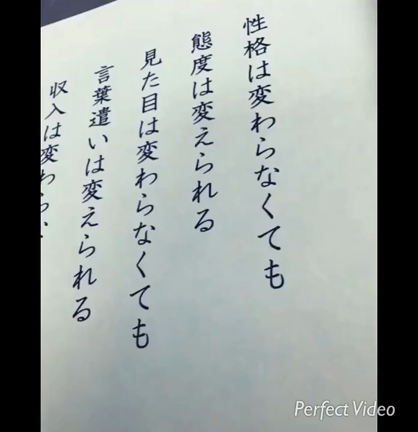 性格は変わらなくても
態度は変えられる
見た目は変わらなくても
言葉遣いは変えられる
収入は変わら
Perfect Video